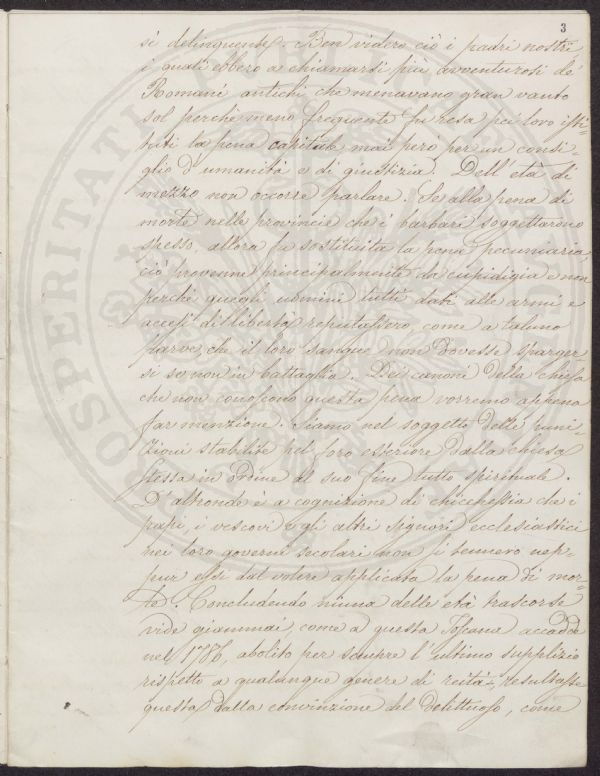 3
sì delinquente. Ben videro ciò i padri nostri
i quali ebbero a chiamarsi più avventurosi de'
Romani antichi che menavano gran vanto
sol perchè meno frequente fu resa pei loro isti-
tuti la pena capitale mai però per un consi-
glio d'umanità e di giustizia. Dell'età di
mezzo non occorre parlare. Se alla pena di
morte nelle provincie che i barbari soggettarono
spesso allora fu sostituita la pena pecuniaria
ciò provenne principalmente da cupidigia e non
perchè quegli uomini tutti dati alle armi e
accesi di libertà reputassero, come a taluno
parve, che il loro sangue non dovesse sparger
si se non in battaglia. Dei canoni della chiesa
che non conoscono questa pena vorremo appena
far menzione. Siamo nel soggetto delle puni-
zioni stabilite nel foro esteriore dalla chiesa
stessa in ordine al suo fine tutto spirituale.
D'altronde è a cognizione di chicchessia che i
papi, i vescovi e gli altri signori ecclesiastici
nei loro governi secolari non si tennero nep-
pur essi dal volere applicata la pena di mor-
te. Concludendo niuna delle età trascorse
vide giammai, come a questa Toscana accadde
nel 1786, abolito per sempre l'ultimo supplizio
rispetto a qualunque genere di reità, resultasse
questa dalla convinzione del delittuoso, come
PROSPERITATI